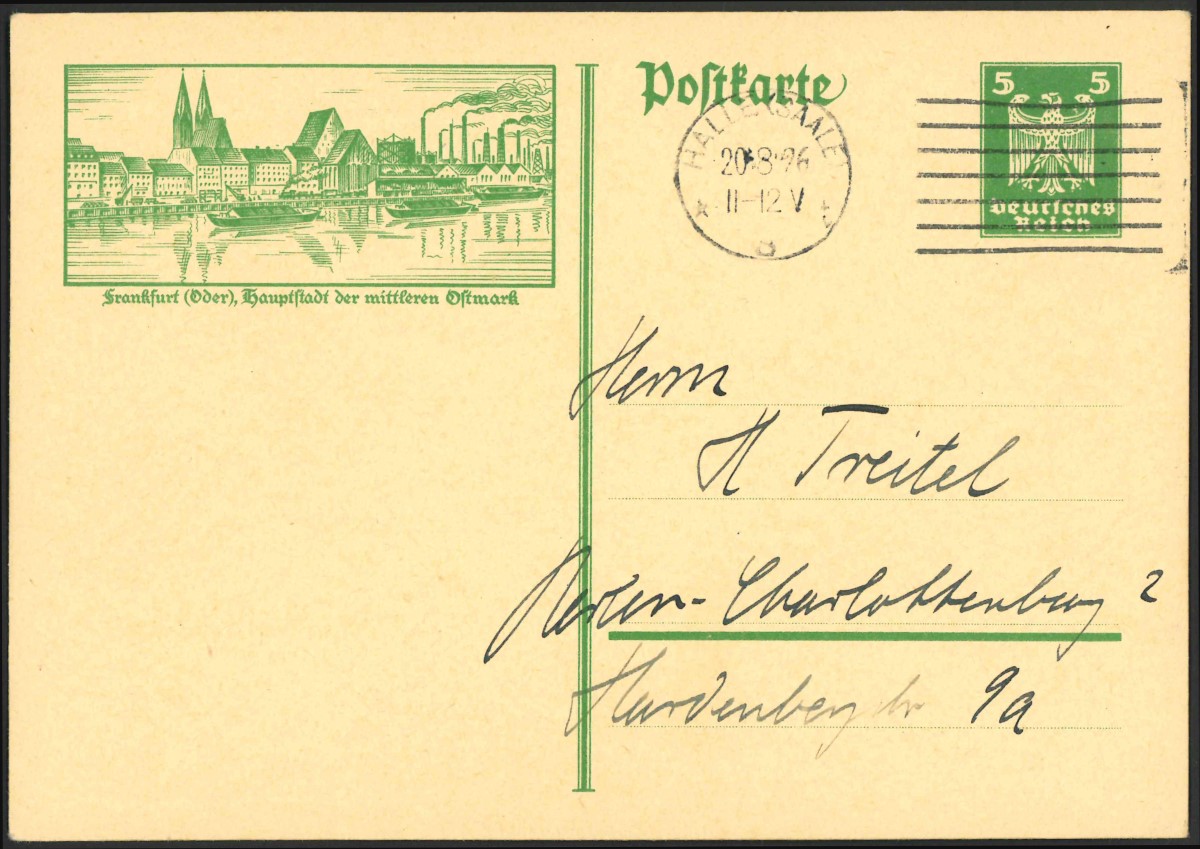 Postkarte
5 5
Deutsches
Reich
HALLE (SAALE)
20.8.26
11-12 V
Frankfurt (Oder), Hauptstadt der mittleren Ostmark
Herrn
H Treitel
Berlin-Charlottenburg 2
Hardenbergstr 9a